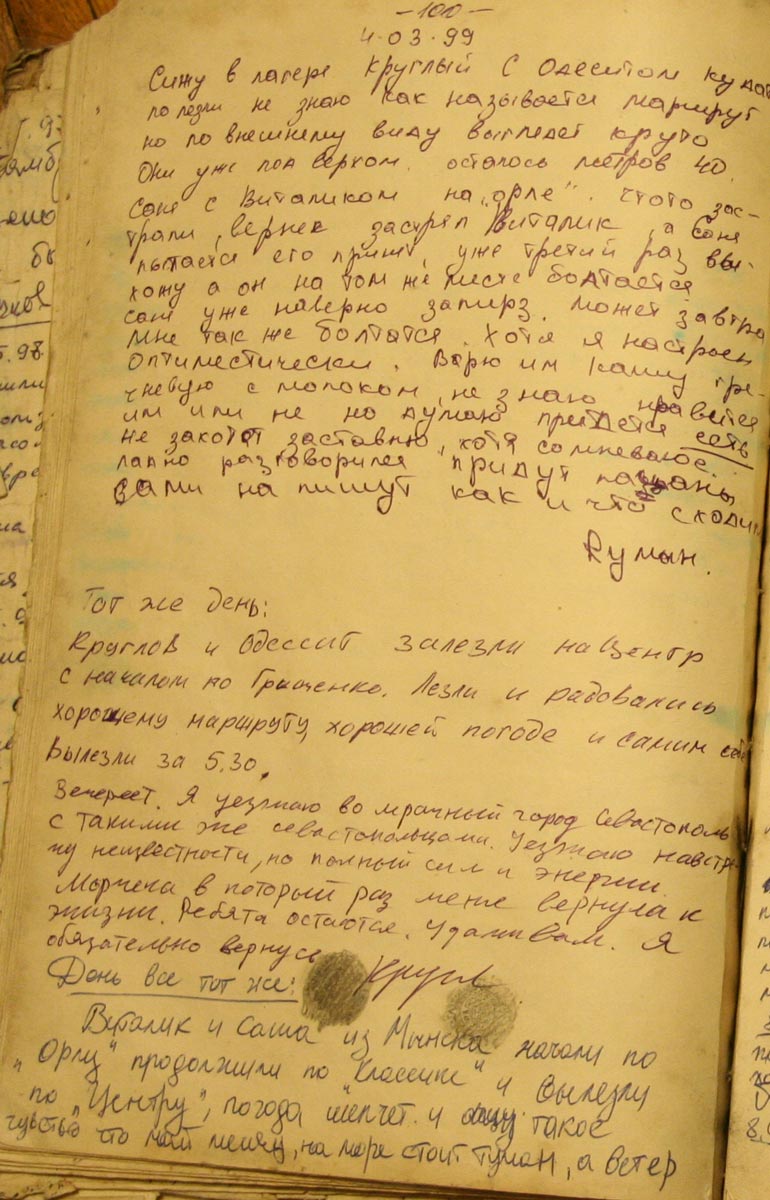 -100-
4.03.99
Сижу в лагере Круглый с Одеситом куда
полезли не знаю как называется маршрут
но по внешнему виду выгледет круто
Они уже под верхом. осталось метров 40.
Саня с Виталиком на "орле". Чтото зас-
тряли, вернее застрял Виталик, а Саня
пытается его принят, уже третий раз вы-
хожу а он на том же месте болтается
саня уже наверно замерз. Может завтра
мне так же болтатся. Хотя я настроен
оптиместически. Варю им кашу гре-
чневую с молоком, не знаю нравется
им или не но думаю придется есть
не захотят заставлю, хотя сомневаюс.
ладно разговорился придут пацаны
сами на пишут как и что сходили
Румын.
Тот же день:
Круглов и Одессит залезли на Центр
с началом по Грищенко. Лезли и радовались
хорошему маршруту, хорошей погоде и самим себе
Вылезли за 5.30.
Вечереет. Я уезжаю во мрачный город Севастополь
с такими же севастопольцами. Уезжаю навстре-
чу неизвестности, но полный сил и энергии.
Морчека в который раз меня вернула к
жизни. Ребята остаются. Удачи вам. Я
обязательно вернусь Кругл
День все тот же:
Виталик и Саша из Мынска начали по
"Орлу" продолжили по "Классике" и вылезли
по "Центру", погода шепчет и такое
чувство что май месяц, на море стоит туман, а ветер